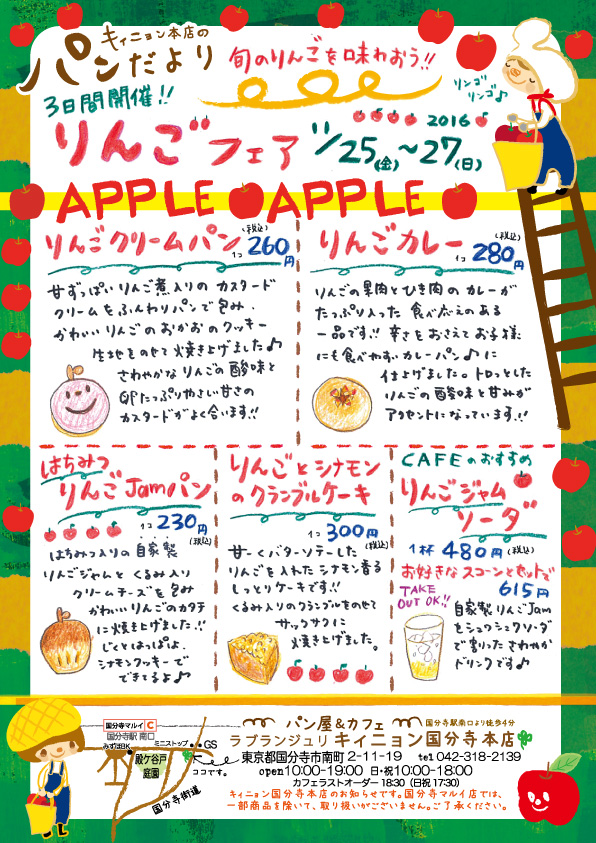 キィニョン本店の
パンだより
旬のりんごを味わおう!!
リンゴ
リンゴ♪
3日間開催!!
りんごフェア
2016
11/25(金)~27(日)
APPLE APPLE
りんごクリームパン
(税込)
1コ 260円
甘ずっぱいりんご煮入りのカスタード
クリームをふんわりパンで包み、
かわいいりんごのおかおのクッキー
生地をのせて焼き上げました♪
さわやかなりんごの酸味と
卵たっぷりやさしい甘さの
カスタードがよく合います!!
りんごカレー
(税込)
1コ 280円
りんごの果肉とひき肉のカレーが
たっぷり入った食べ応えのある
一品です!! 辛さをおさえてお子様
にも食べやすいカレーパン♪に
仕上げました。トロッとした
りんごの酸味と甘みが
アクセントになっています!!
はちみつ
りんごJamパン
1コ 230円
(税込)
はちみつ入りの自家製
りんごジャムとくるみ入り
クリームチーズを包み
かわいいりんごのカタチ
に焼き上げました!!
じくとはっぱは、
シナモンクッキーで
できてるよ♪
りんごとシナモン
のクランブルケーキ
1コ 300円
(税込)
甘ーくバターソテーした
りんごを入れたシナモン香る
しっとりケーキです!!
くるみ入りのクランブルをのせて
サックサクに
焼き上げました。
CAFEのおすすめ
りんごジャム
ソーダ
1杯 480円(税込)
お好きなスコーンとセットで
615円
TAKE
OUT OK!!
自家製りんごJam
をシュワシュワソーダ
で割ったさわやか
ドリンクです♪
国分寺マルイ C
国分寺駅 南口
みずほBK
ミニストップ
GS
殿ケ谷戸
庭園
ココです。
国分寺街道
パン屋&カフェ
国分寺駅南口より徒歩4分
ラブランジュリ キィニョン国分寺本店
東京都国分寺市南町 2-11-19 tel 042-318-2139
open10:00-19:00 日・祝10:00-18:00
カフェラストオーダー 18:30 (日祝 17:30)
キィニョン国分寺本店のお知らせです。国分寺マルイ店では、
一部商品を除いて、取り扱いがございません。ご了承ください。